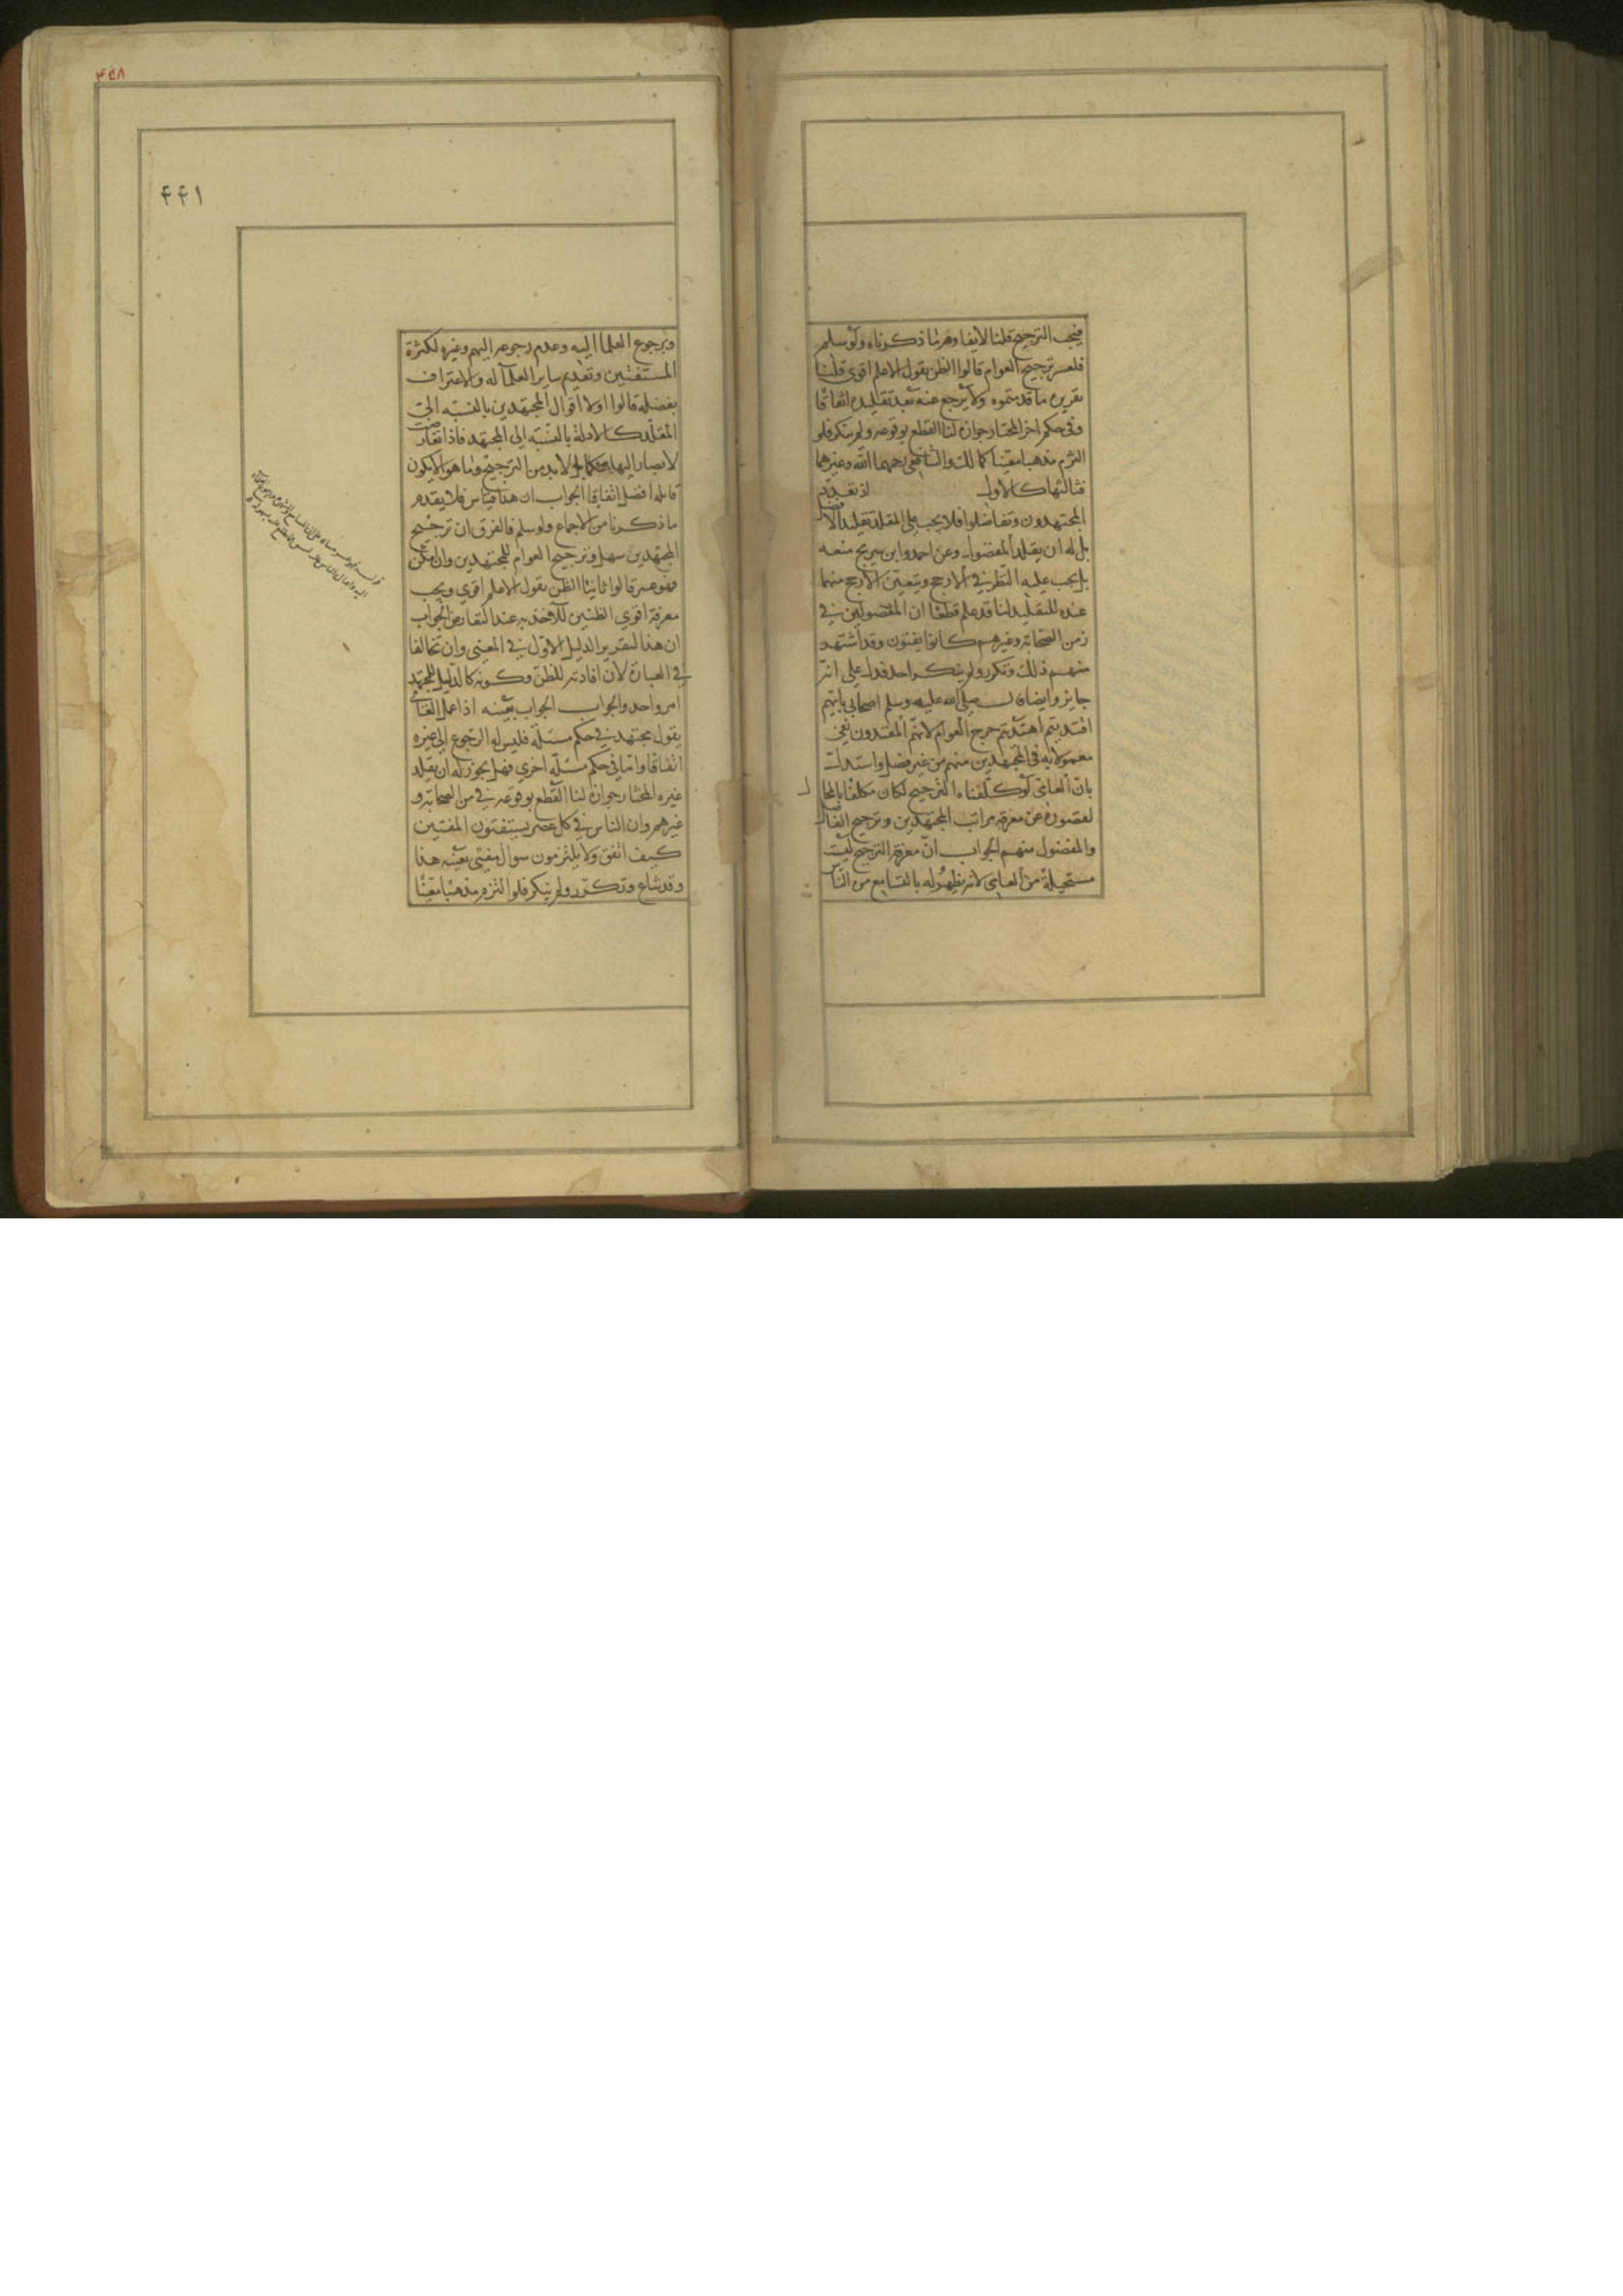 فيجب الترجيح قلنا لا يقاوم ما ذكرناه ولو سلم
فلعسر ترجيح العوام قالوا الظن بقول الاعلم اقوى قلنا
تقرير ما قدمتموه ولا يرجع عنه بعد تقليده اتفاقا
وفى حكم اخر المختار جوازه لنا القطع بوقوعه ولم ينكر فلو
التزم مذهبا معينا كمالك والشافعى رحمهما الله وغيرهما
فثالثها كالاول اذ تعدد
المجتهدون وتفاضلوا فلا يجب على المقلد تقليد الافضل
بل له ان يقلد المفضول وعن احمد وابن سريج منعه
بل يجب عليه النظر في الارجح ويتعين الارجح منهما
عنده للتقليد لنا قد علم قطعا ان المفضولين في
زمن الصحابة وغيرهم كانوا يفتون وقد اشتهد
منهم ذلك وتكرر ولم ينكر احد فدل على انه
جايز وايضا قال صلى الله عليه وسلم اصحابي بايهم
اقتديتم اهتديتم خرج العوام لانهم المقتدون بقي
معمولا به في المجتهدين منهم من غير فضل واستدل
بان العامى لو كلفناه الترجيح لكان مكلفا بالمحال
لقصوره عن معرفة مراتب المجتهدين وترجيح الفاضل
والمفضول منهم الجواب ان معرفة الترجيح ليست
مستحيلة من العامى لانه يظهر له بالتسامع من الناس
٤٤١
وبرجوع العلما اليه وعدم رجوعه اليهم وغيره لكثرة
المستفتين وتقديم ساير العلما له والاعتراف
بفضله قالوا اولا اقوال المجتهدين بالنسبة الى
المقلد كالادلة بالنسبة الى المجتهد فاذا تعارضت
لا يصار اليها تحكما بل لا بد من الترجيح وما هو الا بكون
قايله افضل اتفاقا الجواب ان هذا قياس فلا يقدم
ما ذكرنا من الاجماع ولو سلم فالفرق ان ترجيح
المجتهدين سهل وترجيح العوام للمجتهدين وان امكن
فهو عسر قالوا ثانيا الظن بقول الاعلم اقوي ويجب
معرفة اقوي الظنين للاخذ به عند التعارض الجواب
ان هذا لتقرير الدليل الاول في المعنى وان تخالفا
في العبارة لان افادته للظن وكونه كالدليل للمجتهد
امر واحد والجواب الجواب بعينه اذا عمل العامي
بقول مجتهد في حكم مسئلة فليس له الرجوع الى غيره
اتفاقا واما في حكم مسئلة اخري فهل يجوز له ان يقلد
غيره المختار جوازه لنا القطع بوقوعه في زمن الصحابة و
غيرهم وان الناس في كل عصر يستفتون المفتين
كيف اتفق ولا يلتزمون سوال مفتى بعينه هذا
وقد شاع وتكرر ولم ينكر فلو التزم مذهبا معينا